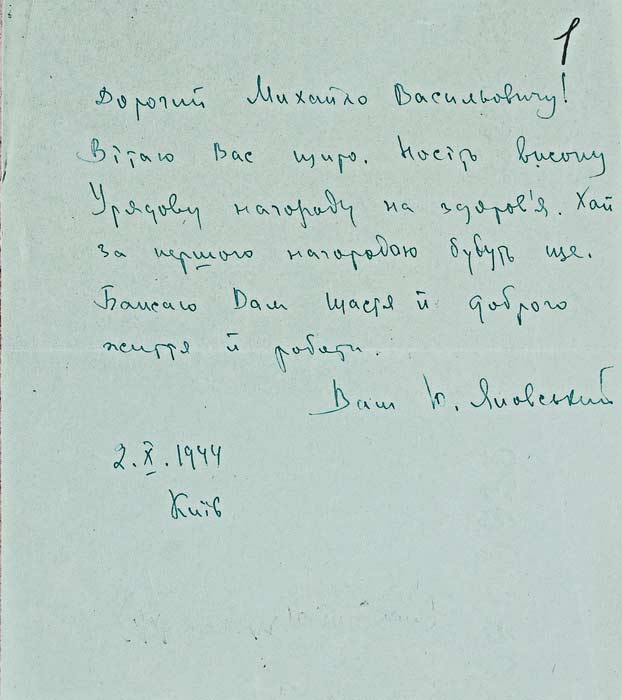 1
Дорогий Михайло Васильовичу!
Вітаю Вас щиро. Носіть високу
Урядову нагороду на здоров'я. Хай
за першою нагородою будуть ще.
Бажаю Вам щастя й доброго
життя й роботи.
Ваш Ю. Яновський
2.X.1944
Київ